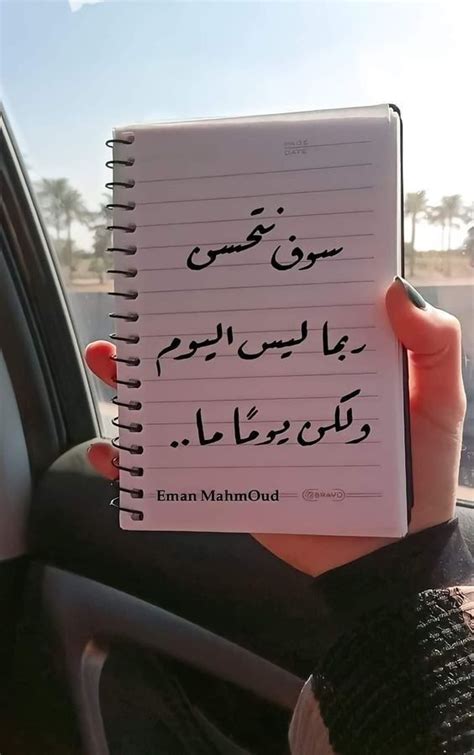 PAGE
DATE
سوف نتحسن
ربما ليس اليوم
ولكن يومًا ما..
Eman MahmOud
BRAVO